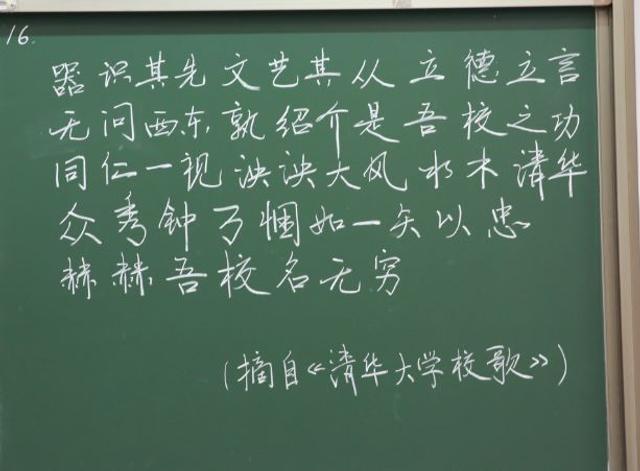 16.
器识其先文艺其从立德立言
无问西东孰绍介是吾校之功
同仁一视泱泱大风水木清华
众秀钟万悃如一矢以忠
赫赫吾校名无穷
(摘自《清华大学校歌》)